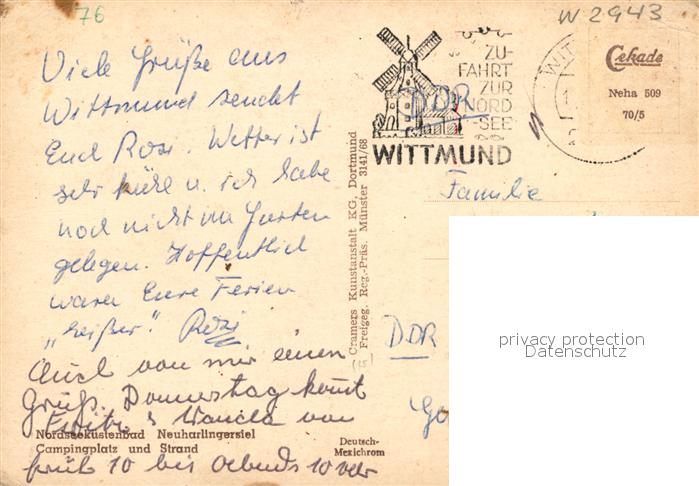 76
W 2943
Viele Grüße aus
Wittmund sendet
Euch Rosi. Wetter ist
sehr kühl u. ich habe
noch nicht im Garten
gelegen. Hoffentlich
waren Eure Ferien
„heißer“. Rosi
Auch von mir einen
Gruß. Donnerstag kommt
u. Wanda von
früh 10 bis abends 10 Uhr
Nordseeküstenbad Neuharlingersiel
Campingplatz und Strand
Deutsch-
Mexichrom
Cramers Kunstanstalt KG, Dortmund
Freigeg. Reg.-Präs. Münster 3141/68
(15)
ZU-
FAHRT
ZUR
NORD
-SEE
WITTMUND
DDR
WIT
Cekade
Neha 509
70/5
Familie
DDR
privacy protection
Datenschutz